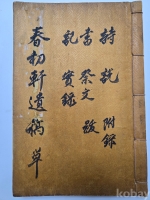 詩 說 附錄
書 祭文 跋
乳 實錄
春初軒遺稿 單
kobay